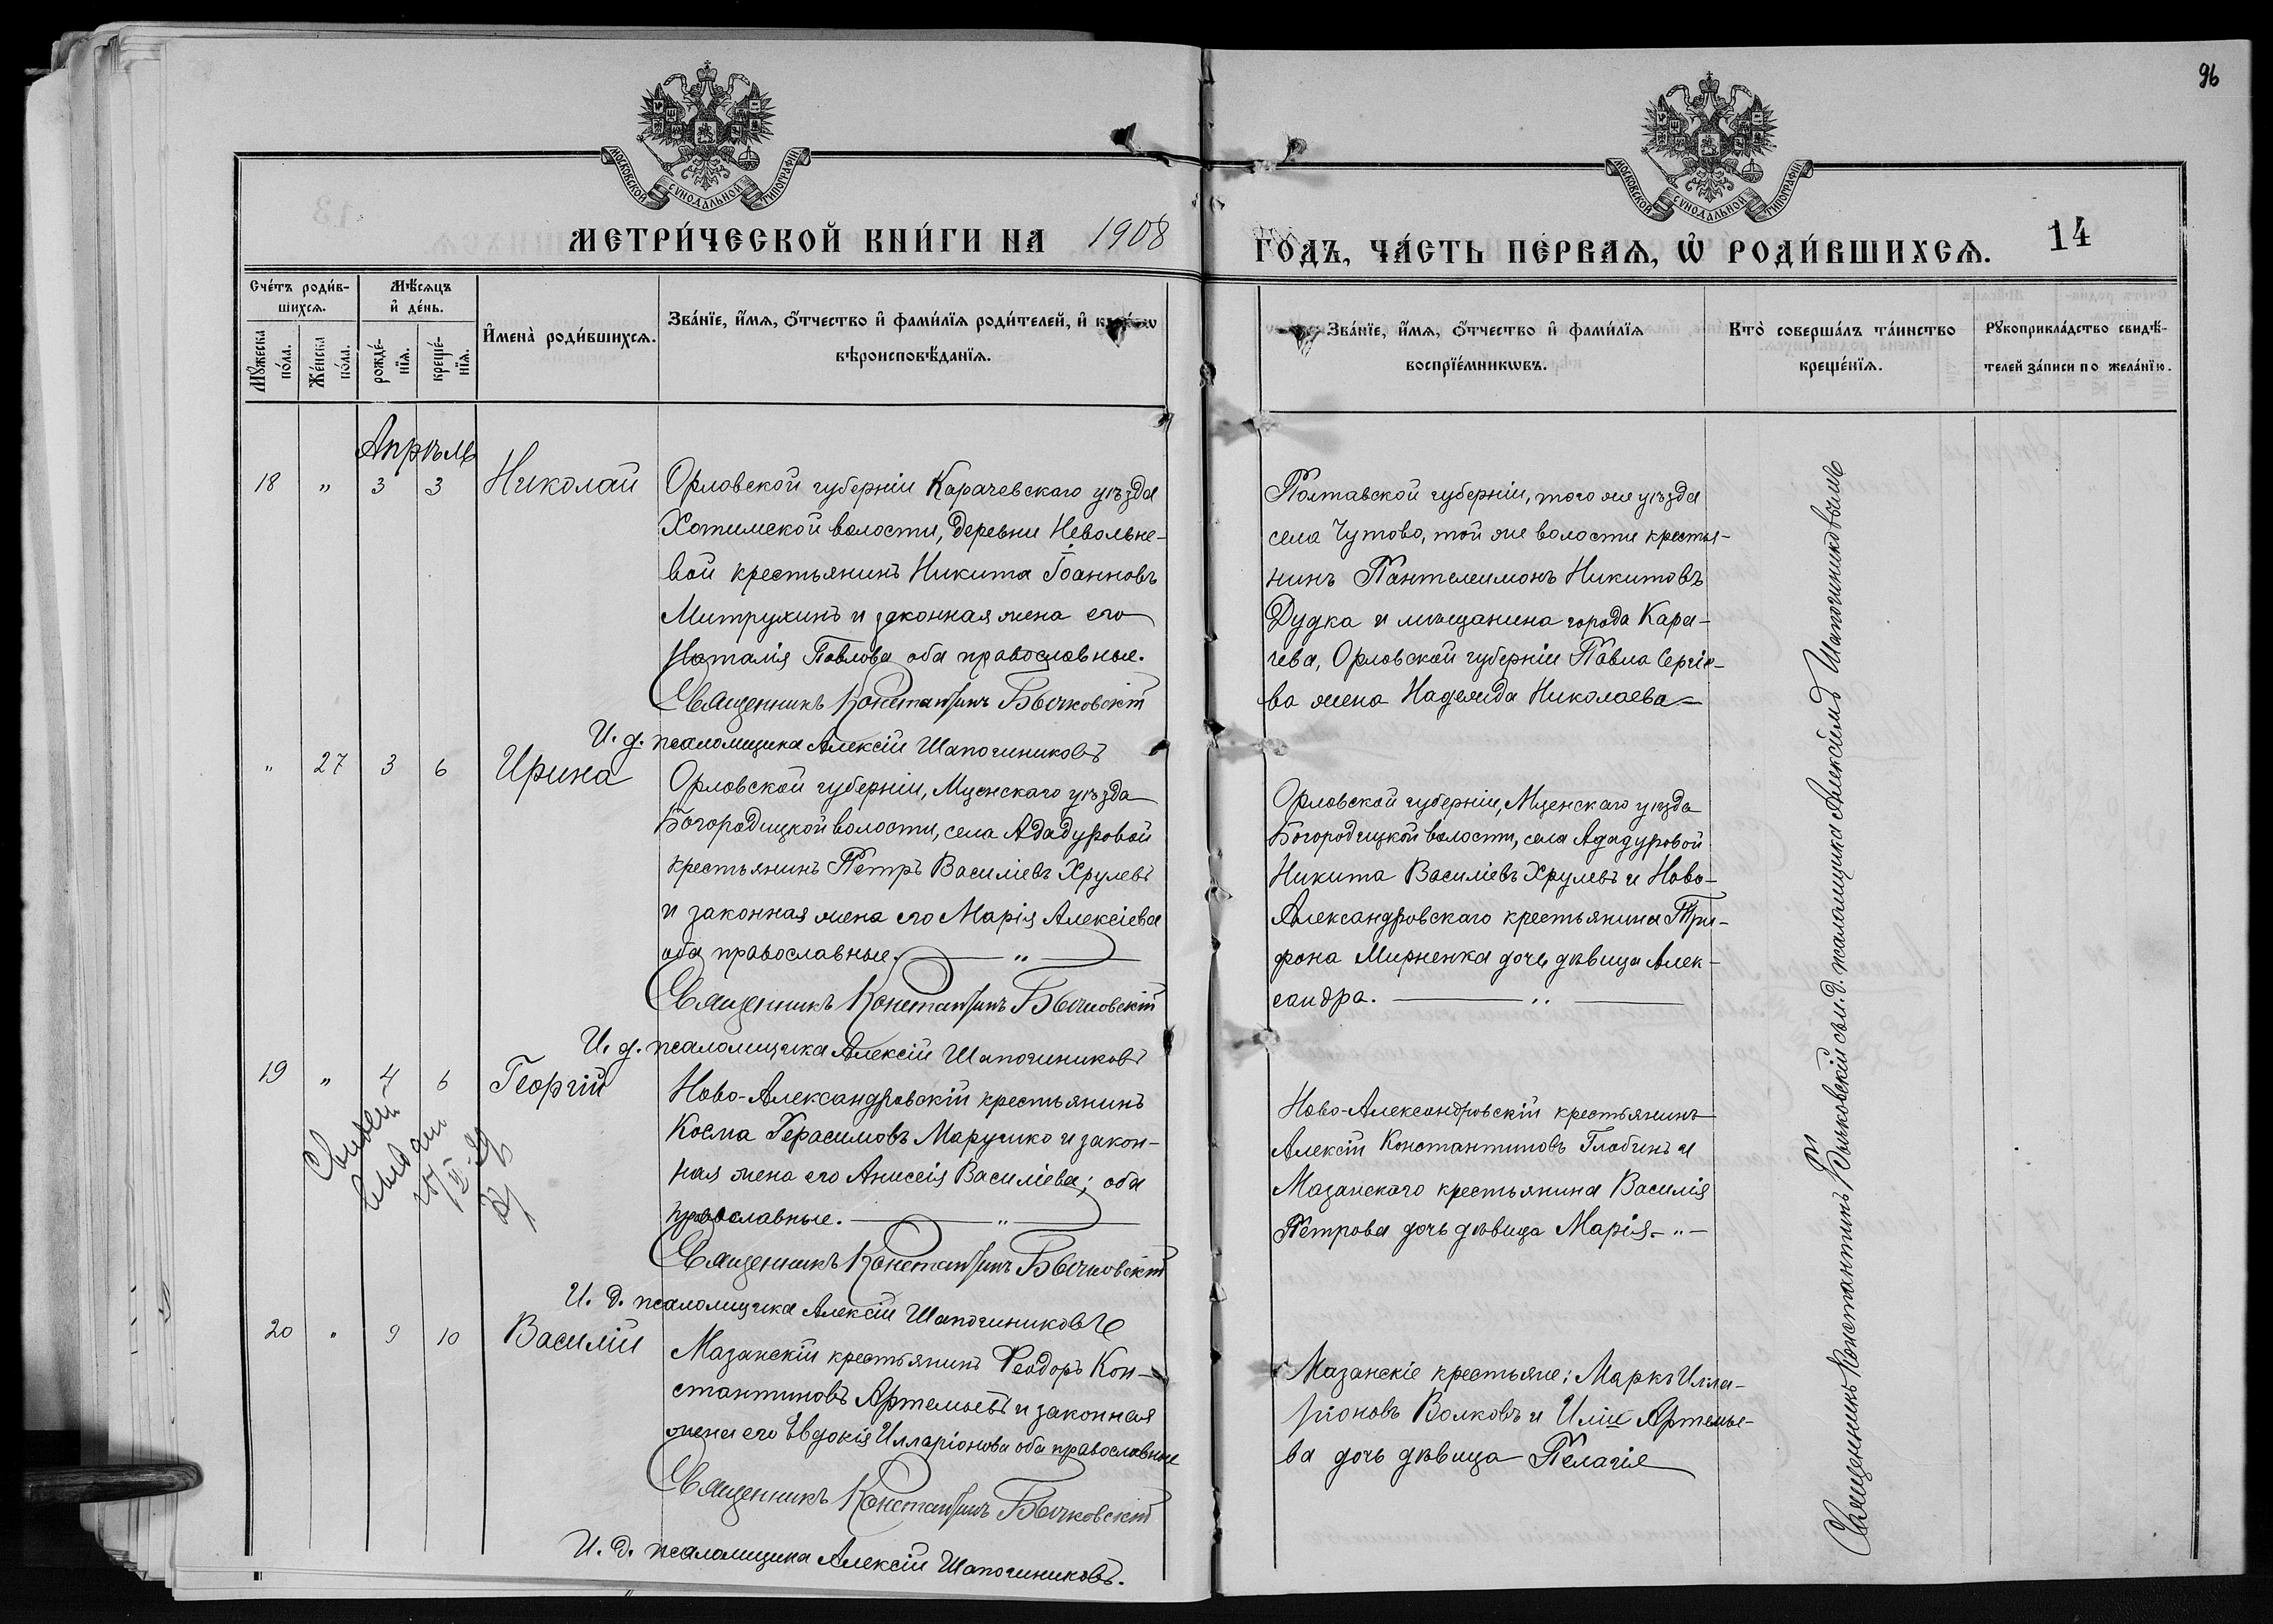 96
МОСКОВСКОЙ СѴНОДАЛЬНОЙ ТИПОГРАФІИ
МОСКОВСКОЙ СѴНОДАЛЬНОЙ ТИПОГРАФІИ
МЕТРИ́ЧЕСКОЙ КНИ́ГИ НА 1908
ГОДЪ, ЧА́СТЬ ПЕ́РВАѦ, Ѡ҆ РОДИ́ВШИХСѦ. 14
Сче́тъ роди́в-
шихсѧ.
Мꙋ́жеска по́ла.
Же́нска по́ла.
Мѣ́сѧцъ
и҆ де́нь.
рожде́-
нїѧ.
креще́-
нїѧ.
И҆мена̀ роди́вшихсѧ.
Зва́нїе, и҆́мѧ, ѻ҆́тчество и҆ фами́лїѧ роди́телей, и҆
вѣроисповѣ́данїѧ.
Зва́нїе, и҆́мѧ, ѻ҆́тчество и҆ фами́лїѧ
воспрїе́мникѡвъ.
Кто̀ соверша́лъ та́инство
креще́нїѧ.
Рꙋкоприкла́дство свидѣ́-
телей за́писи по жела́нїю.
Апрѣль
18 " 3 3 Николай
Орловской губерніи Карачевскаго уѣзда
Хотимской волости, деревни Невольне-
вой крестьянинъ Никита Іоанновъ
Митрухинъ и законная жена его
Наталія Павлова оба православные.
Священникъ Константинъ Бычковскій
И. д. псаломщика Алексій Шапочниковъ
Полтавской губерніи, того же уѣзда
села Чутово, той же волости крестья-
нинъ Пантелеимонъ Никитовъ
Дудка и мѣщанина города Кара-
чева, Орловской губерніи Павла Сергіе-
ва жена Надежда Николаева —
" 27 3 6 Ирина
Орловской губерніи, Мценскаго уѣзда
Богородицкой волости, села Ададуровой
крестьянинъ Петръ Василіевъ Хрулевъ
и законная жена его Марія Алексіева
оба православные. — " —
Священникъ Константинъ Бычковскій
И. д. псаломщика Алексій Шапочниковъ
Орловской губерніи, Мценскаго уѣзда
Богородицкой волости, села Ададуровой
Никита Василіевъ Хрулевъ и Ново-
Александровскаго крестьянина Три-
фона Мирненка дочь дѣвица Алек-
сандра. — " —
19 " 4 6 Георгій
Ново-Александровскій крестьянинъ
Косма Герасимовъ Марушко и закон-
ная жена его Анисія Василіева; оба
православные. — " —
Священникъ Константинъ Бычковскій
И. д. псаломщика Алексій Шапочниковъ
Ново-Александровскій крестьянинъ
Алексій Константиновъ Глобинъ и
Мазанскаго крестьянина Василія
Петрова дочь дѣвица Марія — " —
20 " 9 10 Василій
Мазанскій крестьянинъ Ѳеодоръ Кон-
стантиновъ Артемьевъ и законная
жена его Евдокія Илларіонова оба православные
Священникъ Константинъ Бычковскій
И. д. псаломщика Алексій Шапочниковъ.
Мазанскіе крестьяне: Маркъ Илла-
ріоновъ Волковъ и Иліи Артемье-
ва дочь дѣвица Пелагія
Священникъ Константинъ Бычковскій съ и. д. псаломщика Алексіемъ Шапочниковымъ